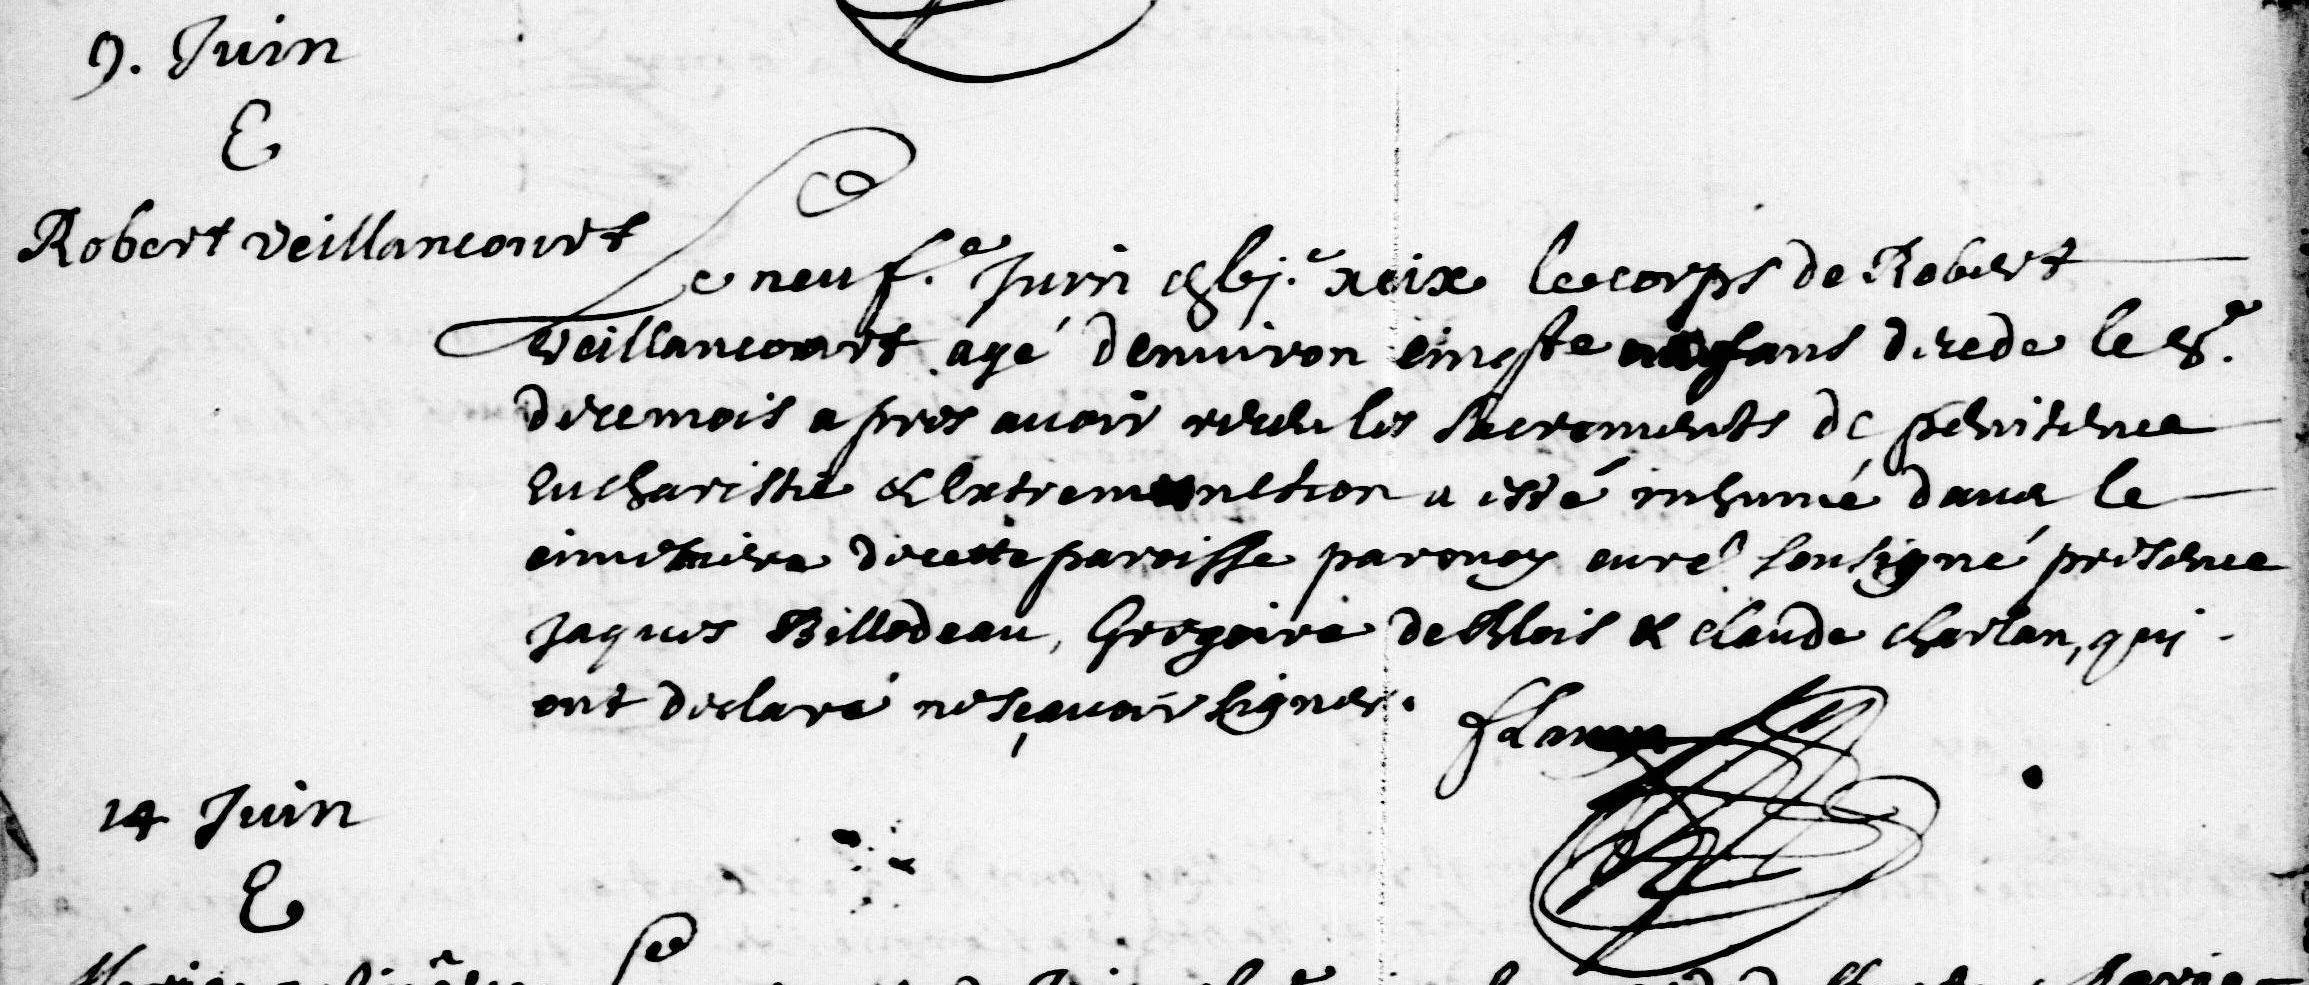 9. Juin
E
Robert veillancourt
Le neuf.e Juin gbj.c xcix le corps de Robert
veillancourt agé denuiron cinq te ans decede le 8.e
dece mois apres auoir receu les Sacrements de penitence
Eucharistie & Extremeonction a esté inhumé dans le
cimetiere decette paroisse parmoy curé sousigné presence
Jaques Billodeau, Gregoire deblois & claude charlan, qui
ont declaré nesçauoir signer.
14 Juin
E